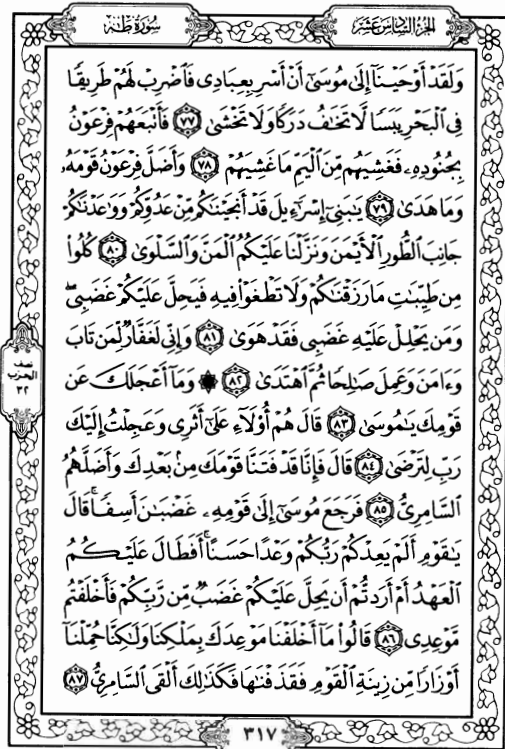 الجزء السادس عشر
سورة طه
وَلَقَدْ أَوْحَيْنَآ إِلَىٰ مُوسَىٰٓ أَنْ أَسْرِ بِعِبَادِى فَٱضْرِبْ لَهُمْ طَرِيقًا
فِى ٱلْبَحْرِ يَبَسًا لَّا تَخَـٰفُ دَرَكًا وَلَا تَخْشَىٰ ٧٧ فَأَتْبَعَهُمْ فِرْعَوْنُ
بِجُنُودِهِۦ فَغَشِيَهُم مِّنَ ٱلْيَمِّ مَا غَشِيَهُمْ ٧٨ وَأَضَلَّ فِرْعَوْنُ قَوْمَهُۥ
وَمَا هَدَىٰ ٧٩ يَـٰبَنِىٓ إِسْرَٰٓءِيلَ قَدْ أَنجَيْنَـٰكُم مِّنْ عَدُوِّكُمْ وَوَٰعَدْنَـٰكُمْ
جَانِبَ ٱلطُّورِ ٱلْأَيْمَنَ وَنَزَّلْنَا عَلَيْكُمُ ٱلْمَنَّ وَٱلسَّلْوَىٰ ٨٠ كُلُوا۟
مِن طَيِّبَـٰتِ مَا رَزَقْنَـٰكُمْ وَلَا تَطْغَوْا۟ فِيهِ فَيَحِلَّ عَلَيْكُمْ غَضَبِى ۖ
وَمَن يَحْلِلْ عَلَيْهِ غَضَبِى فَقَدْ هَوَىٰ ٨١ وَإِنِّى لَغَفَّارٌ لِّمَن تَابَ
وَءَامَنَ وَعَمِلَ صَـٰلِحًا ثُمَّ ٱهْتَدَىٰ ٨٢ ۞ وَمَآ أَعْجَلَكَ عَن
قَوْمِكَ يَـٰمُوسَىٰ ٨٣ قَالَ هُمْ أُو۟لَآءِ عَلَىٰٓ أَثَرِى وَعَجِلْتُ إِلَيْكَ
رَبِّ لِتَرْضَىٰ ٨٤ قَالَ فَإِنَّا قَدْ فَتَنَّا قَوْمَكَ مِنۢ بَعْدِكَ وَأَضَلَّهُمُ
ٱلسَّامِرِىُّ ٨٥ فَرَجَعَ مُوسَىٰٓ إِلَىٰ قَوْمِهِۦ غَضْبَـٰنَ أَسِفًا ۚ قَالَ
يَـٰقَوْمِ أَلَمْ يَعِدْكُمْ رَبُّكُمْ وَعْدًا حَسَنًا ۚ أَفَطَالَ عَلَيْكُمُ
ٱلْعَهْدُ أَمْ أَرَدتُّمْ أَن يَحِلَّ عَلَيْكُمْ غَضَبٌ مِّن رَّبِّكُمْ فَأَخْلَفْتُم
مَّوْعِدِى ٨٦ قَالُوا۟ مَآ أَخْلَفْنَا مَوْعِدَكَ بِمَلْكِنَا وَلَـٰكِنَّا حُمِّلْنَآ
أَوْزَارًا مِّن زِينَةِ ٱلْقَوْمِ فَقَذَفْنَـٰهَا فَكَذَٰلِكَ أَلْقَى ٱلسَّامِرِىُّ ٨٧
نصف
الحزب
٣٢
٣١٧